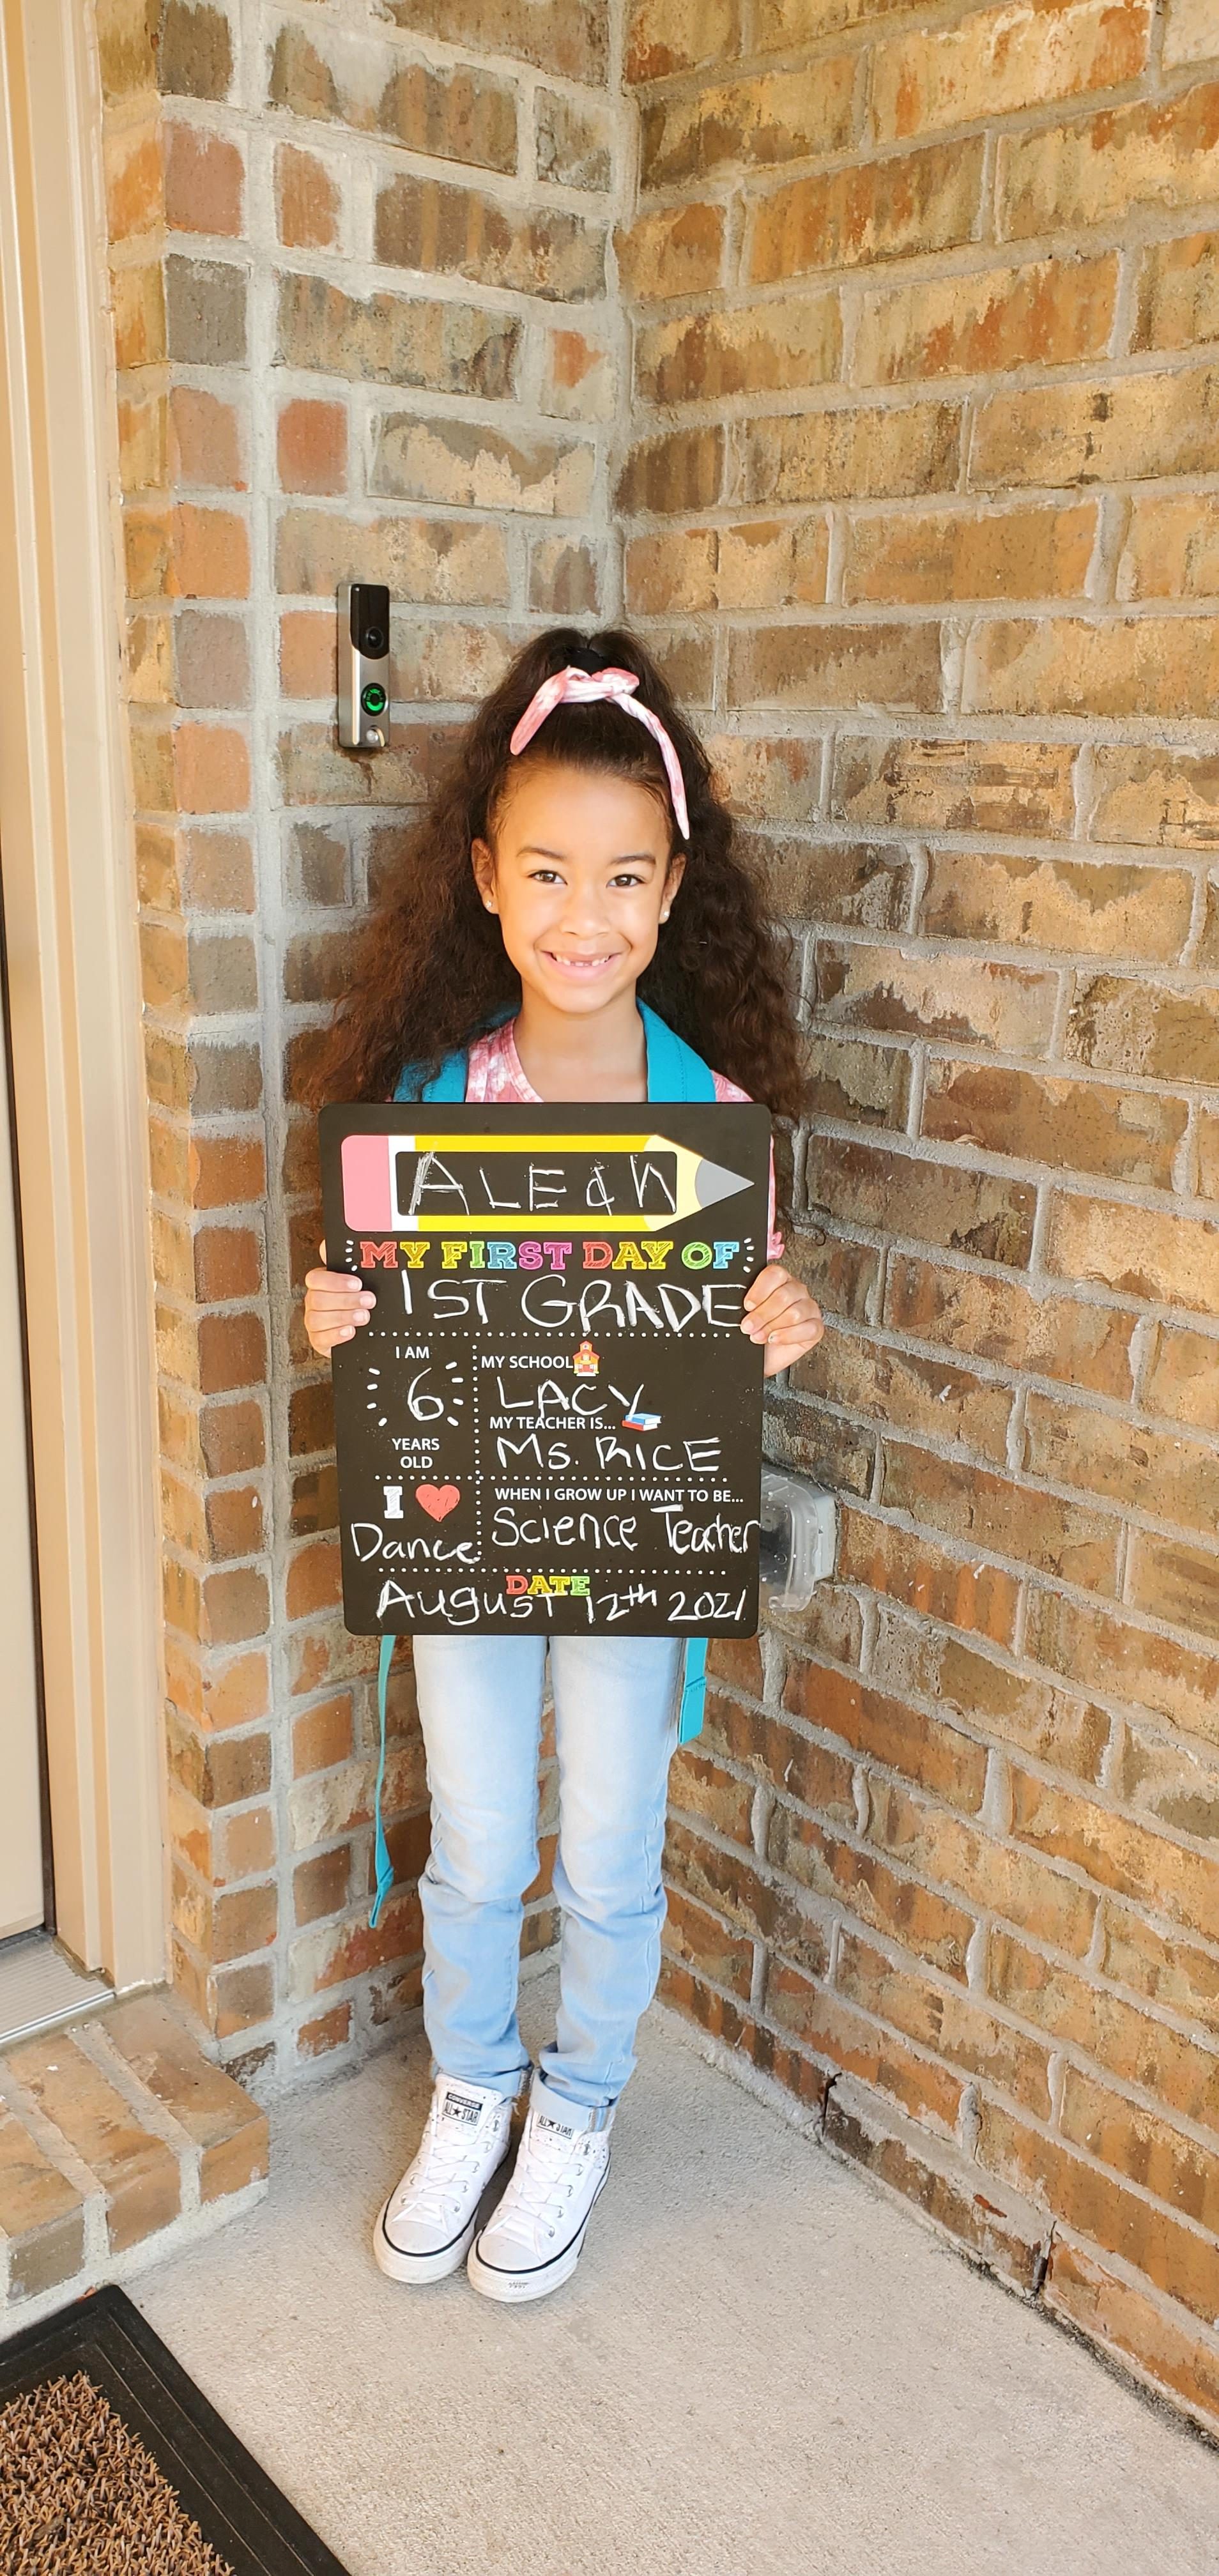 ALE&N
MY FIRST DAY OF
1ST GRADE
I AM
6
YEARS
OLD
MY SCHOOL
LACY
MY TEACHER IS...
Ms. RICE
I
Dance
WHEN I GROW UP I WANT TO BE...
Science Teacher
DATE
August 12th 2021
CONVERSE
ALL★STAR
ALL★STAR